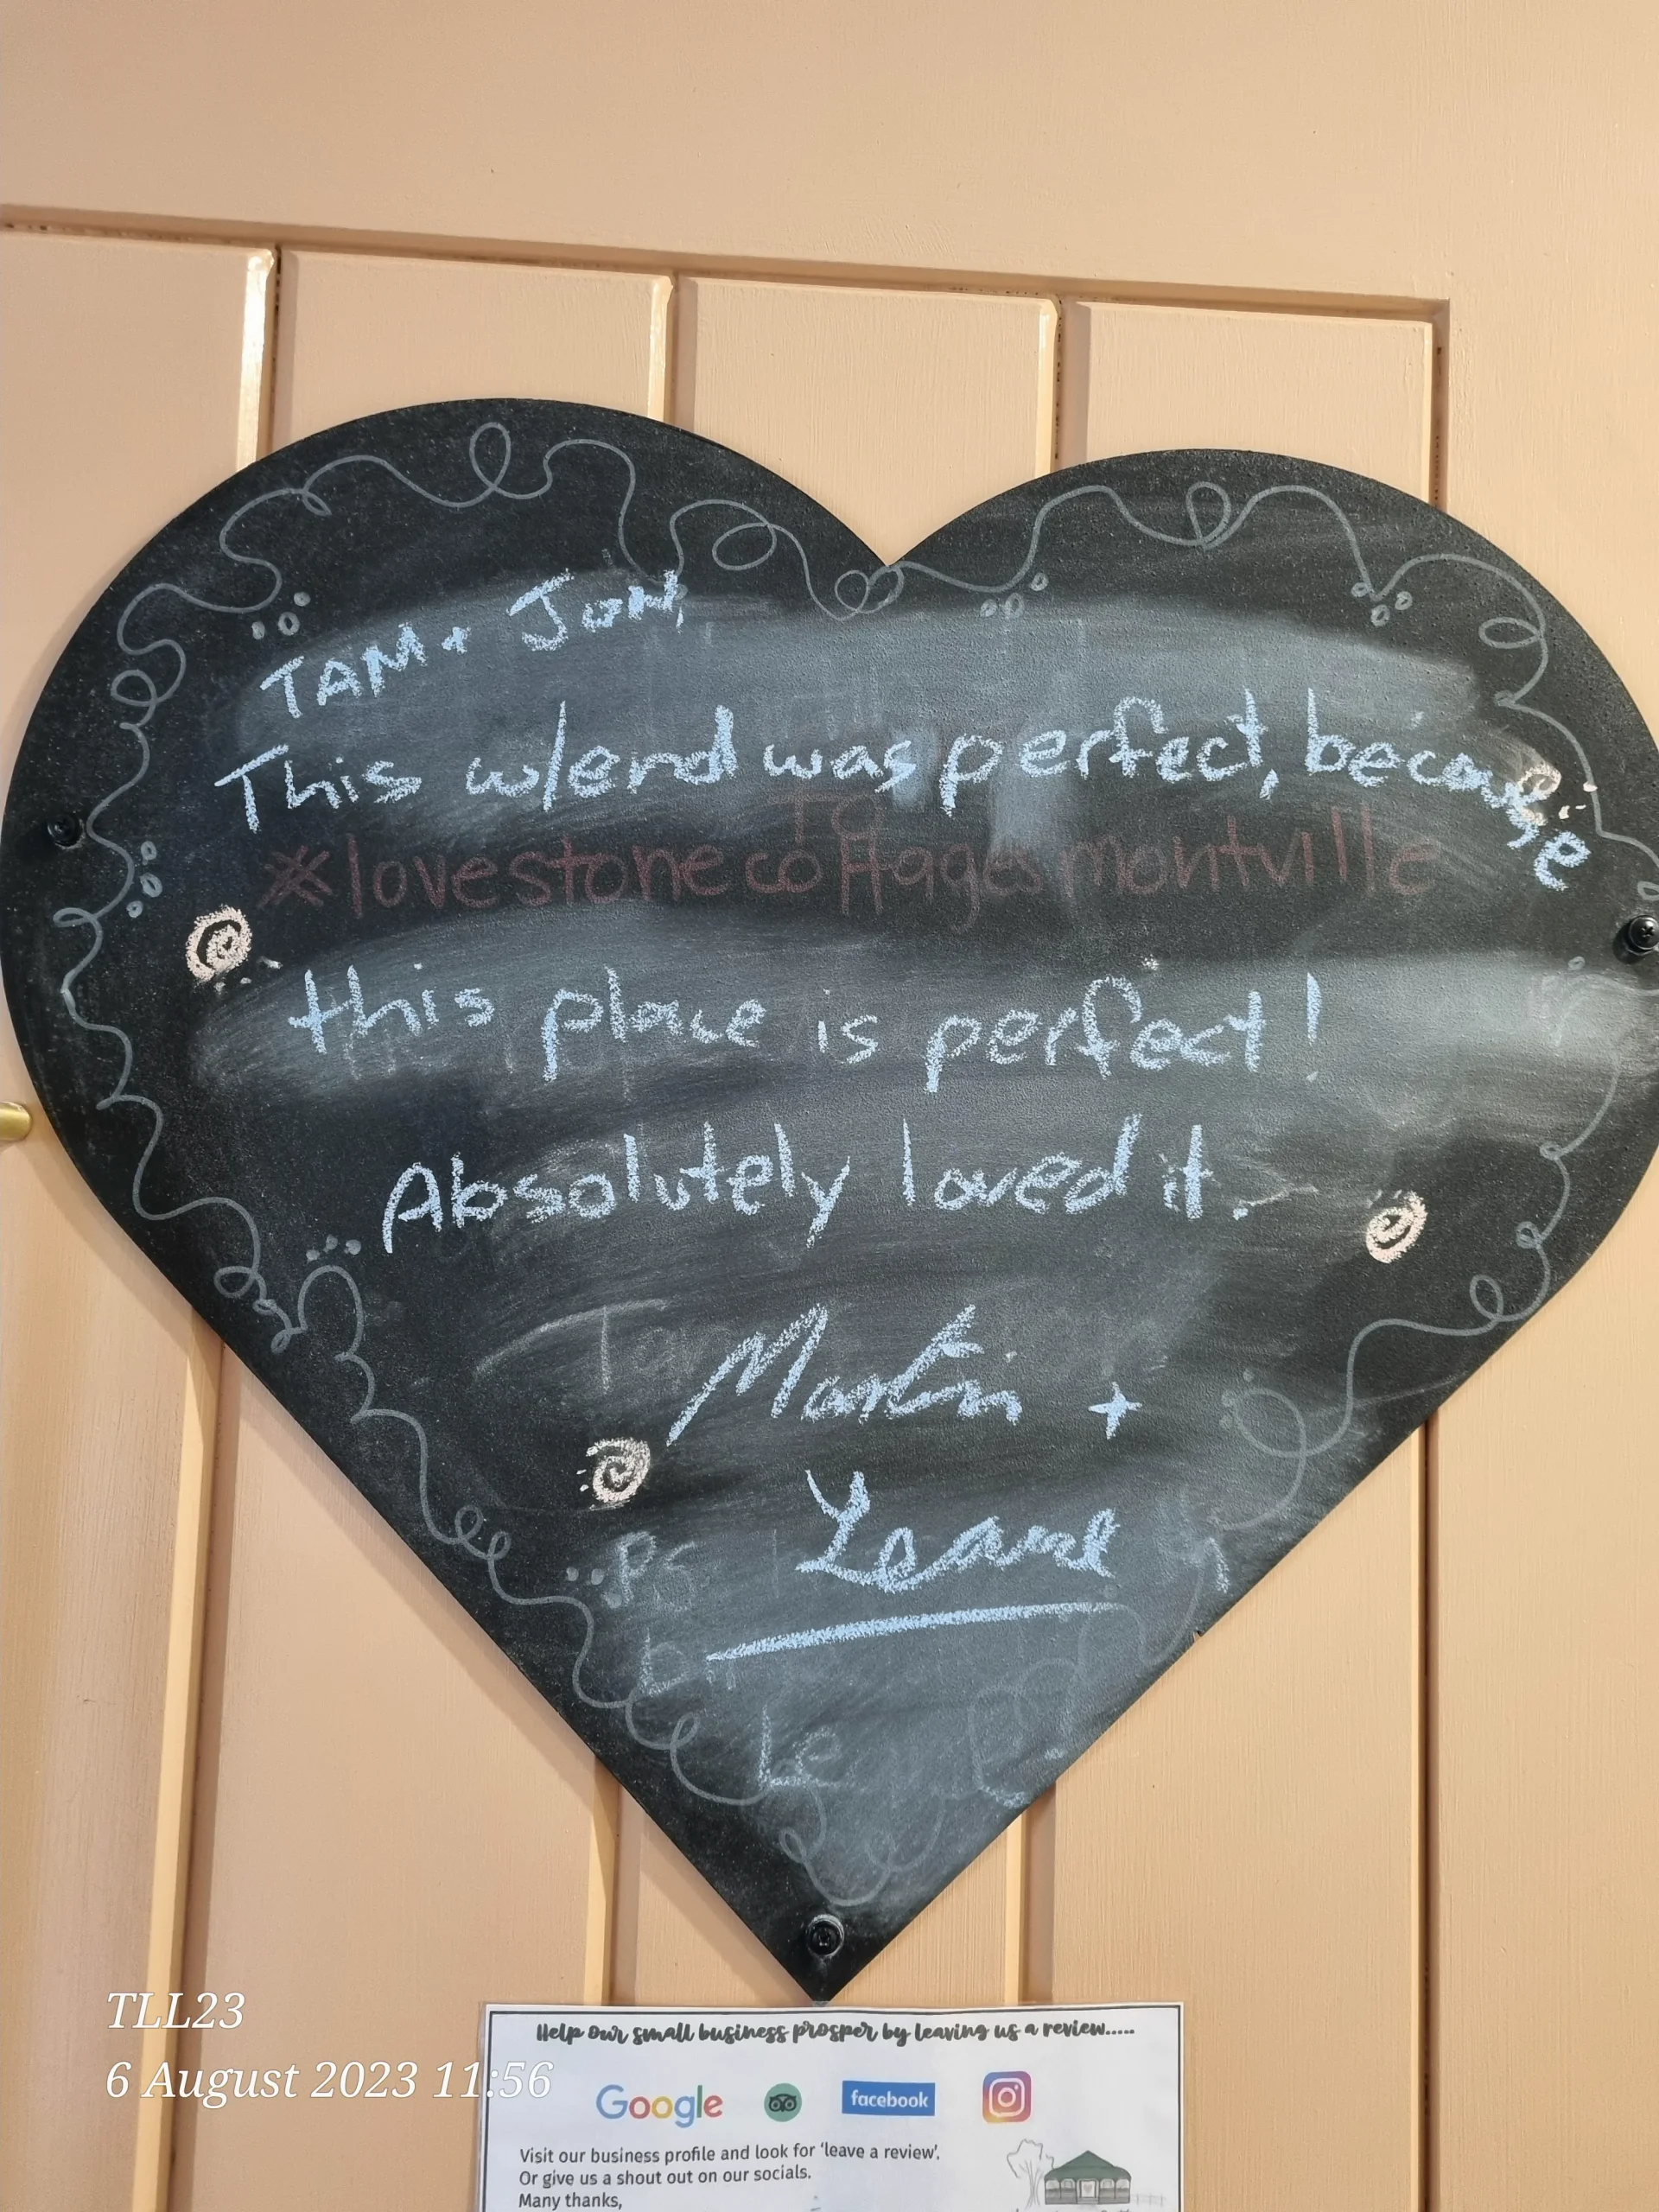 TAM + Jon,
This w/end was perfect, because
TO
*lovestonecottagesmontville
this place is perfect!
Absolutely loved it.
Martin +
Leanne
PS
TLL23
6 August 2023 11:56
Help our small business prosper by leaving us a review.....
Google
facebook
Visit our business profile and look for 'leave a review'.
Or give us a shout out on our socials.
Many thanks,